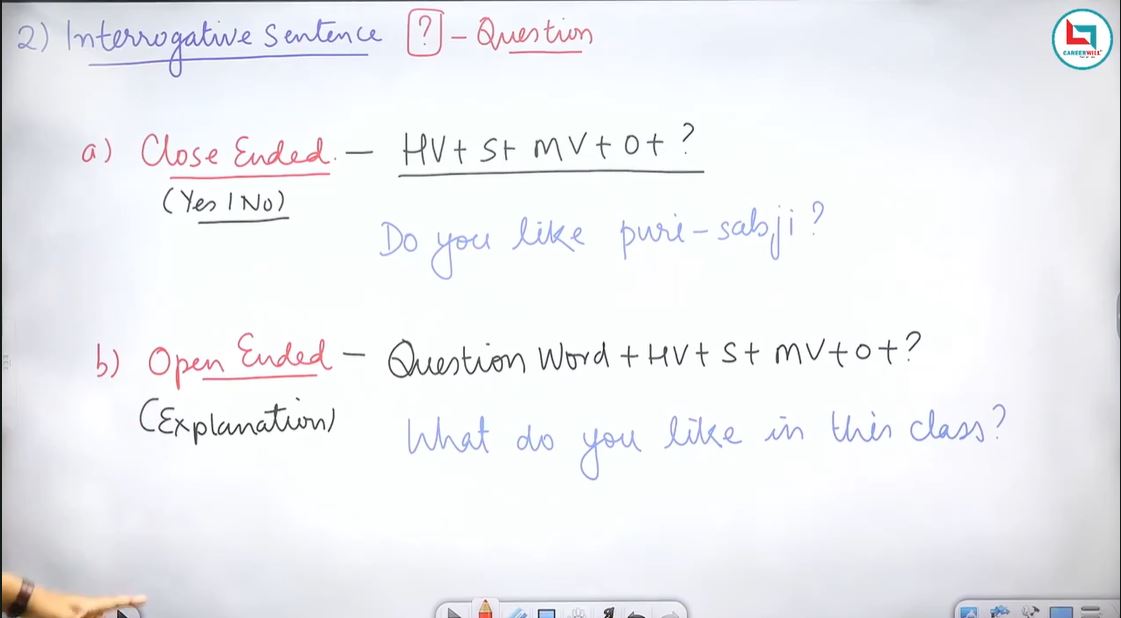 2) Interrogative Sentence ? - Question
a) Close Ended. - HV + S + MV + O + ?
(Yes / No)
Do you like puri-sabji ?
b) Open Ended - Question Word + HV + S + MV + O + ?
(Explanation)
What do you like in this class?
CAREERWILL